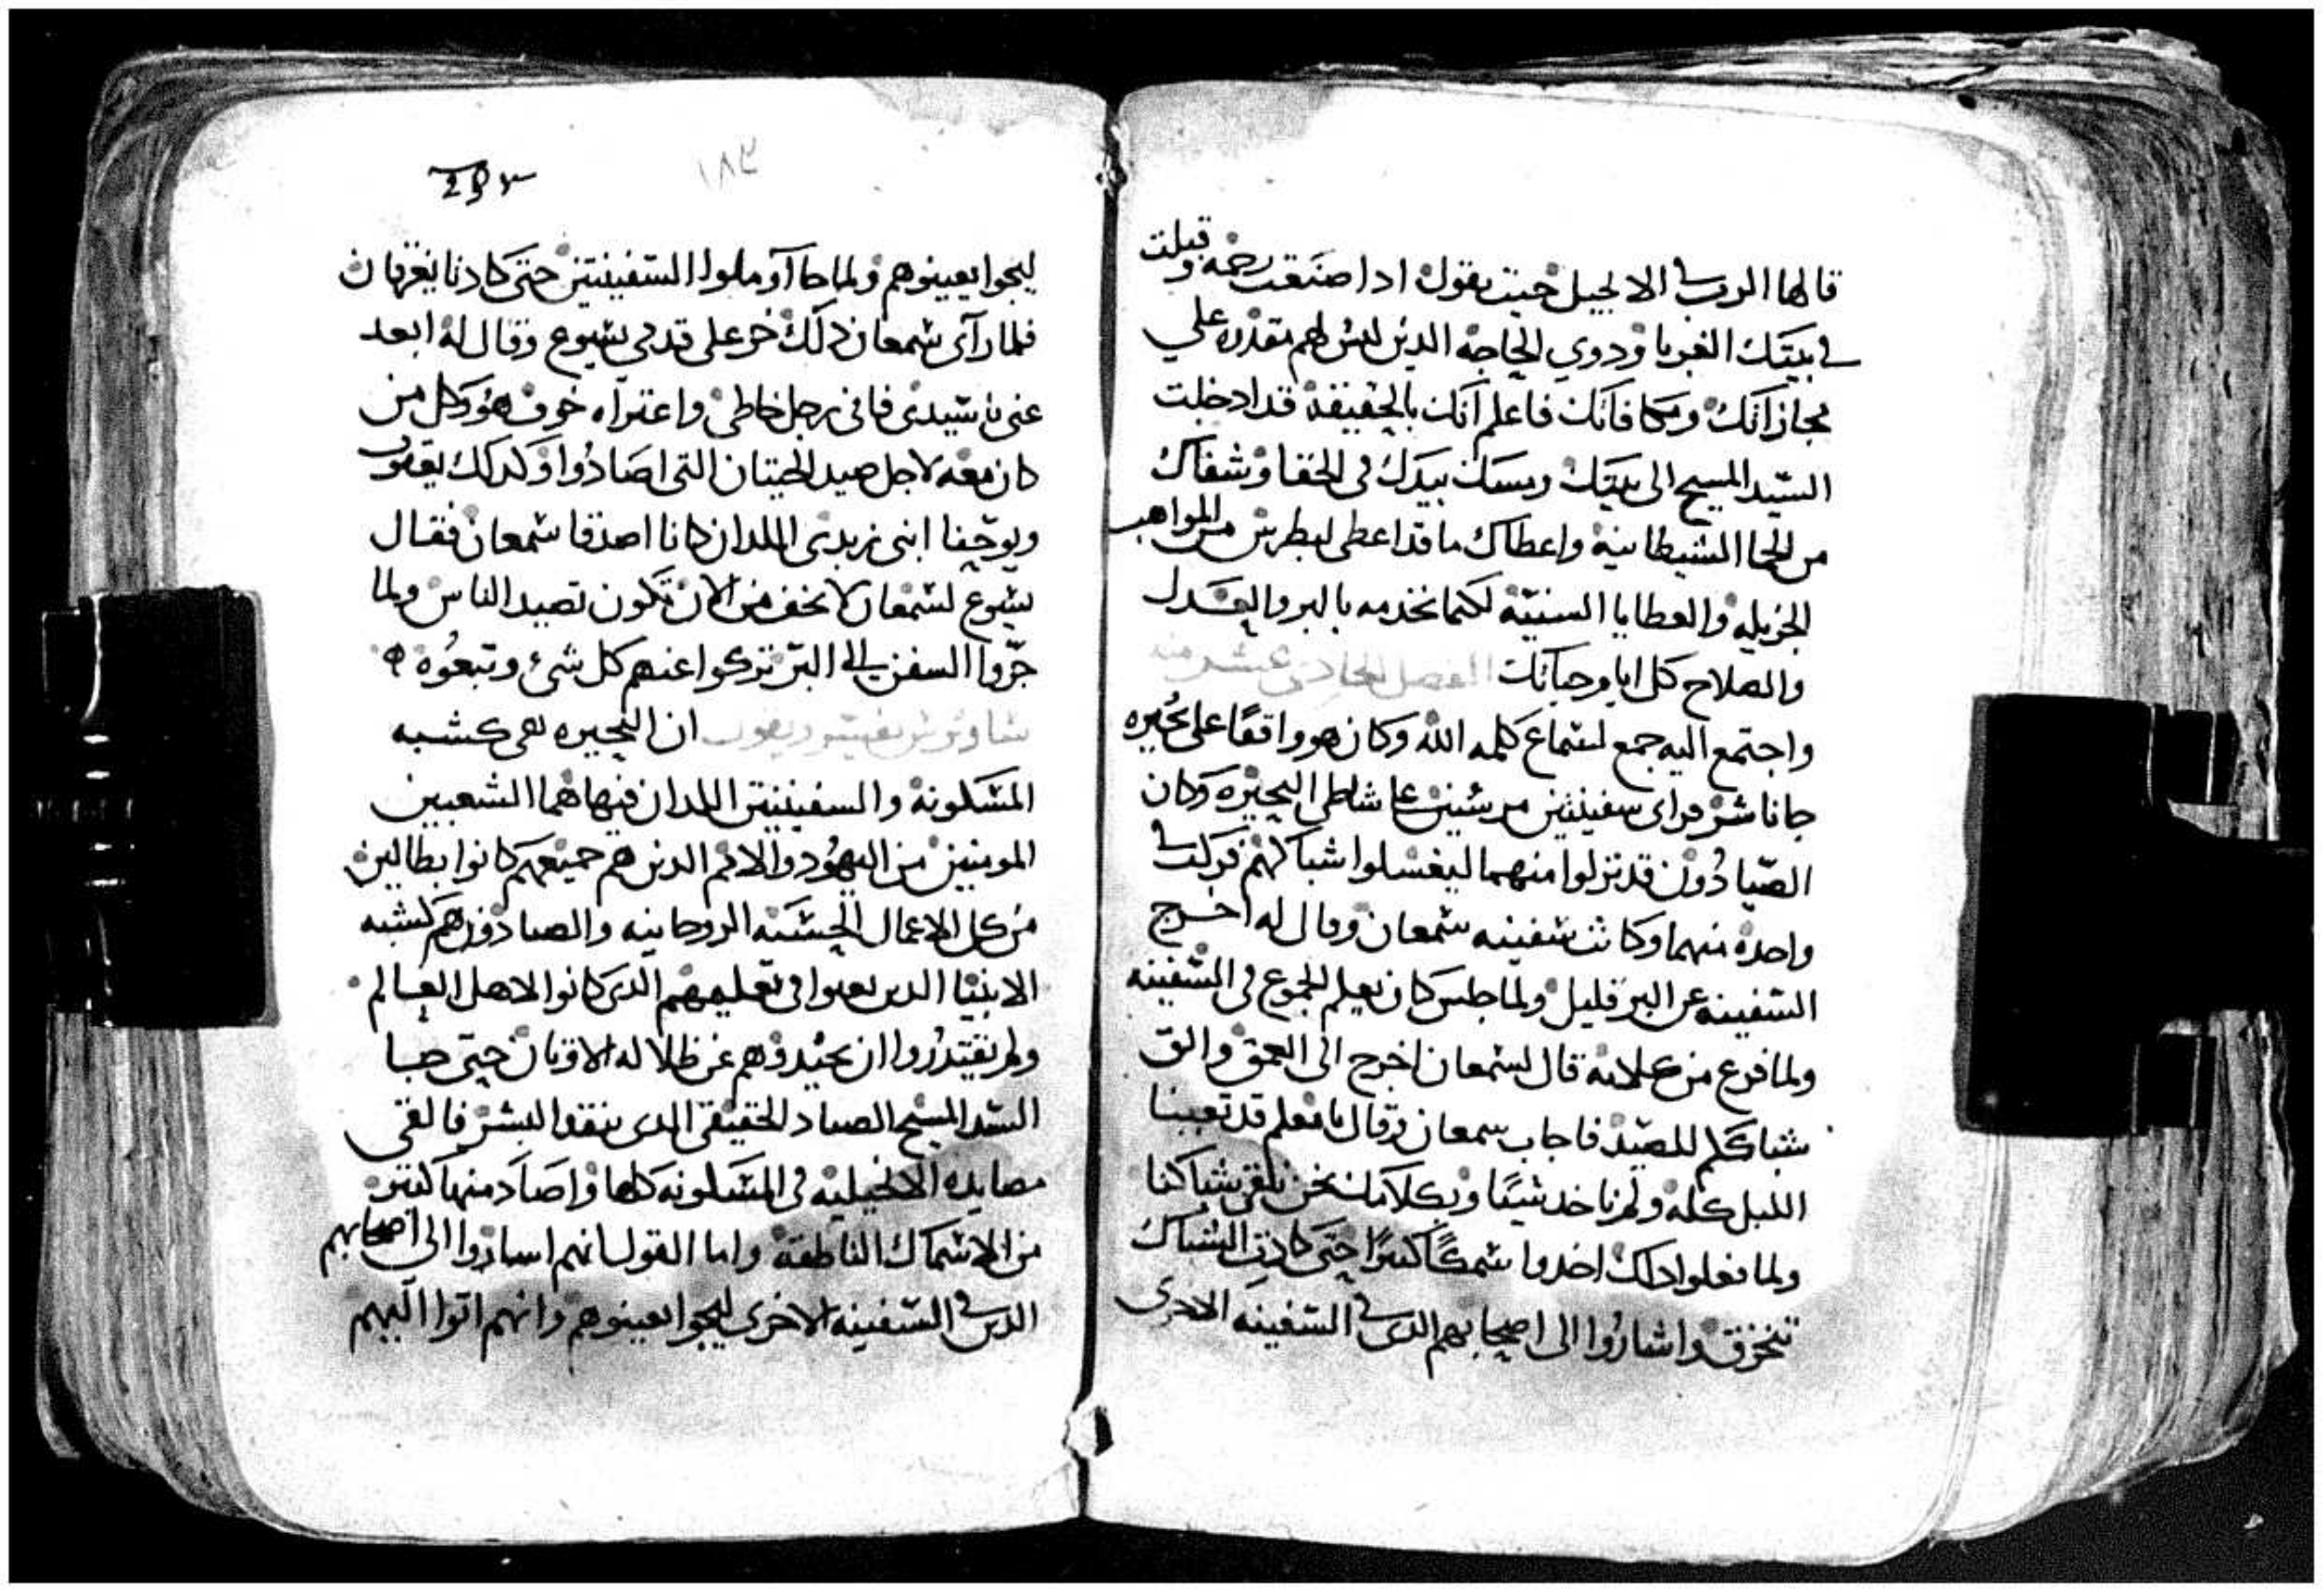 قالها الرب في الانجيل حيت يقول ادا صنعت رحمه وقبلت
في بيتك الغربا ودوي الحاجه الدين ليس لهم مقدره علي
مجازاتك ومكافاتك فاعلم انك بالحقيقه قد ادخلت
السيد المسيح الى بيتك ومسك بيدك في الخفا وشفاك
من الحما الشيطانيه واعطاك ما قد اعطى لبطرس من المواهب
الجزيله والعطايا السنيه لكيما تخدمه بالبر والعدل
والصلاح كل ايام حياتك الفصل الحادي عشر منه
واجتمع اليه جمع لسماع كلمه الله وكان هو واقفا على بحيره
جاناشر فراى سفينتين مرسيين على شاطى البحيره وكان
الصيادون قد نزلوا منهما ليغسلوا شباكهم فركب في
واحده منهما وكانت سفينه سمعان وقال له اخرج
السفينه عن البر قليل ولما جلس كان يعلم الجموع في السفينه
ولما فرغ من كلامه قال لسمعان اخرج الى العمق والق
شباكم للصيد فاجاب سمعان وقال يا معلم قد تعبنا
الليل كله ولم ناخد شيئا وبكلامك نحن نلقي شباكنا
ولما فعلوا داك اخدوا سمكا كتيرا حتى كادت الشباك
تنخرق واشاروا الى اصحابهم الدين في السفينه الاخرى
٢٩٣
١٨٣
ليجوا يعينوهم ولما جاآو ملوا السفينتين حتى كادتا يغرقان
فلما رآى سمعان دلك خر على قدمي يسوع وقال له ابعد
عني يا سيدي فاني رجل خاطي واعتراه خوف هو وكل من
كان معه لاجل صيد الحيتان التي اصادوا وكدلك يعقوب
ويوحنا ابني زبدى اللدان كانا اصدقا سمعان فقال
يسوع لسمعان لا تخف من الان تكون تصيد الناس ولما
جروا السفن الى البر تركوا عنهم كل شئ وتبعوه
ان البحيره هي كشبه
المسكونه والسفينتين اللدان فيها هما الشعبين
المومنين من اليهود والامم الدين هم جميعهم كانوا بطالين
من كل الاعمال الحسنه الروحانيه والصيادون هم كشبه
الانبيا الدين تعبوا في تعليمهم الدي كانوا لاهل العالم
ولم يقتدروا ان يحيدوهم عن ظلاله الاوتان حتى جا
السيد المسيح الصياد الحقيقي الدى ينقد البشر فالقى
مصايده الانجيليه في المسكونه كلها واصاد منها كتير
من الاسماك الناطقه واما القول انهم اساروا الى اصحابهم
الدين في السفينه الاخرى ليجوا يعينوهم وانهم اتوا اليهم